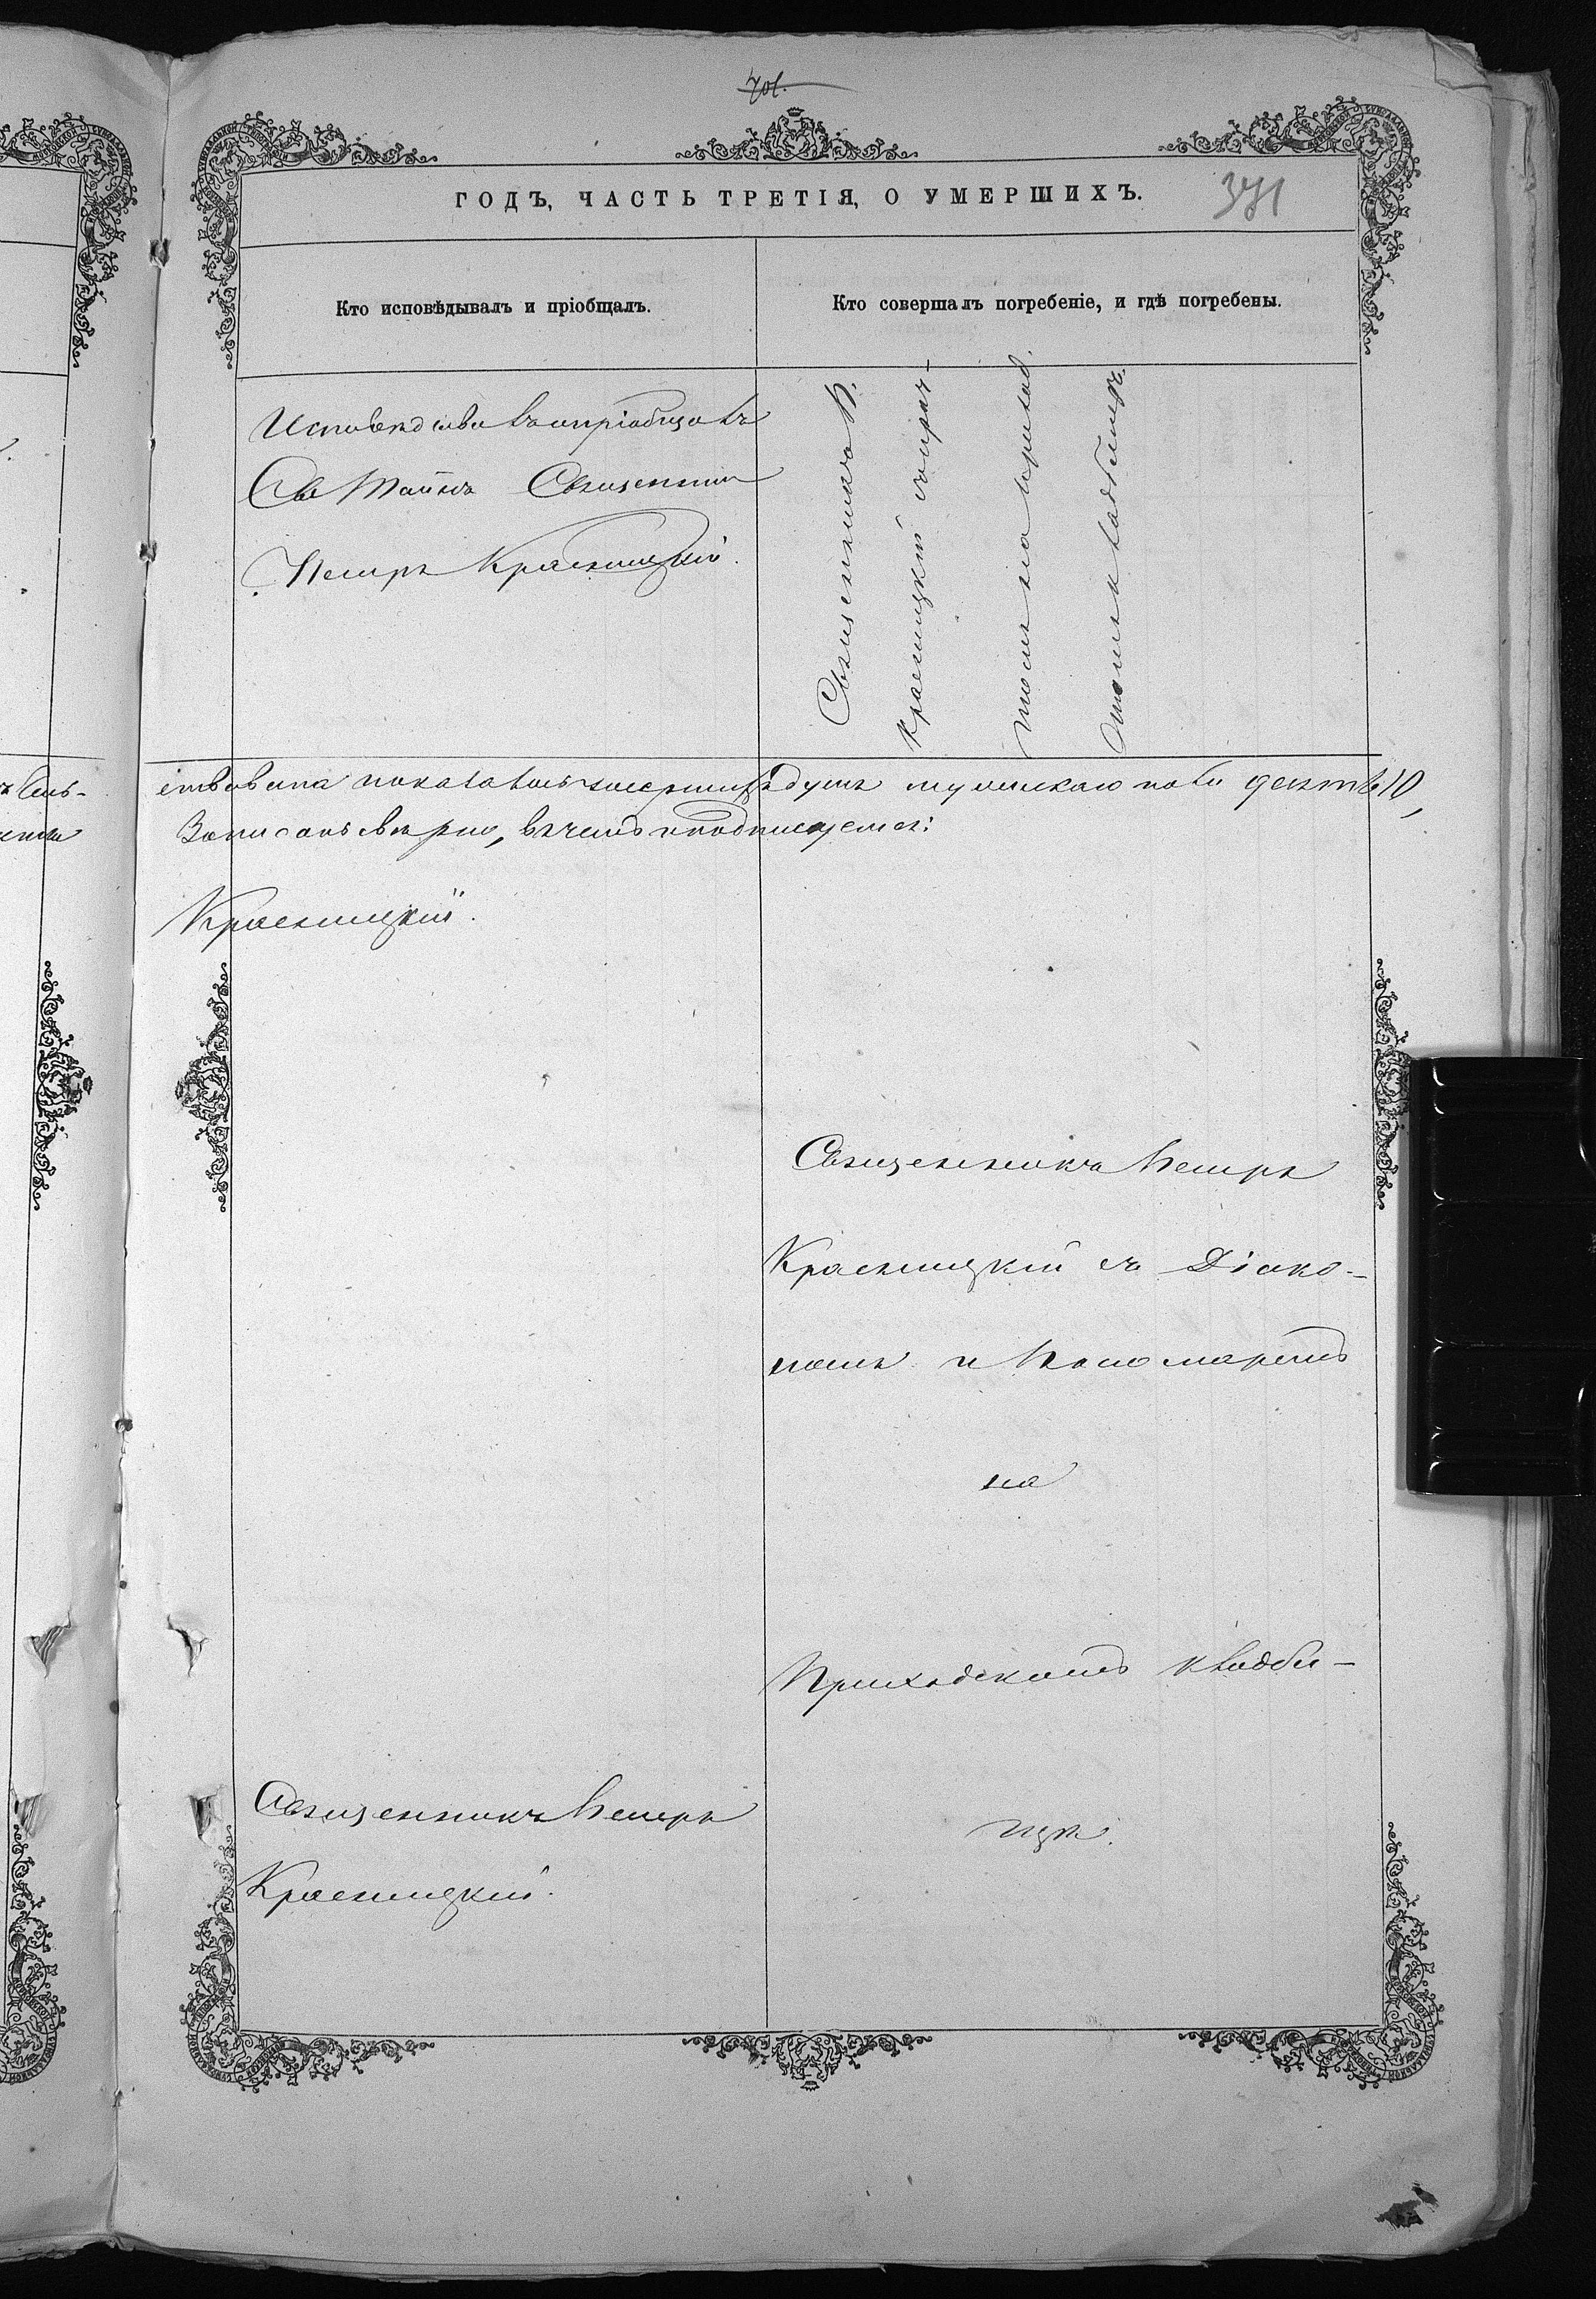 701.
ГОДЪ, ЧАСТЬ ТРЕТІЯ, О УМЕРШИХЪ.
371
Кто исповѣдывалъ и пріобщалъ.
Кто совершалъ погребеніе, и гдѣ погребены.
Исповѣдывалъ и пріобщалъ
Св Таинъ Священник
Петръ Красницкій.
Священникъ П.
Красницкій съ прич-
томъ на приход.
кладбищѣ.
умершихъ душъ мужскаго пола 10,
Записано вѣрно, въ чемъ и подписуемся:
Красницкій.
Священникъ Петръ
Красницкій съ Діако-
номъ и Пономаремъ
на
Приходскомъ кладби-
щѣ.
Священникъ Петръ
Красницкій.